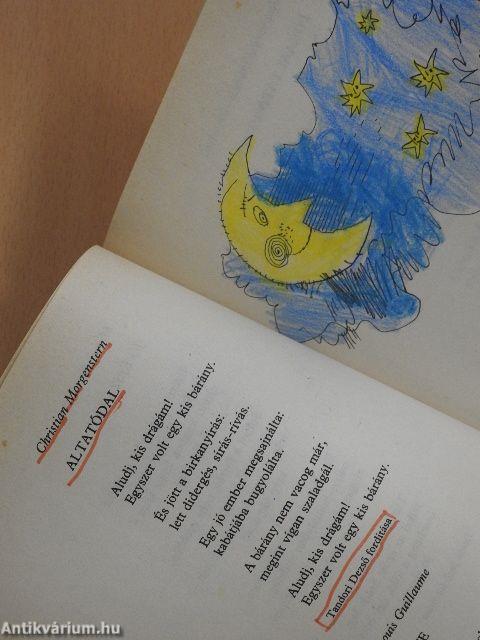 Christian Morgenstern
ALTATÓDAL
Aludj, kis drágám!
Egyszer volt egy kis bárány.
És jött a birkanyírás:
lett didergés, sírás-rívás.
Egy jó ember megsajnálta:
kabátjába bugyolálta.
A bárány nem vacog már,
megint vígan szaladgál.
Aludj, kis drágám!
Egyszer volt egy kis bárány.
Tandori Dezső fordítása
Guillaume
Antikvárium.hu